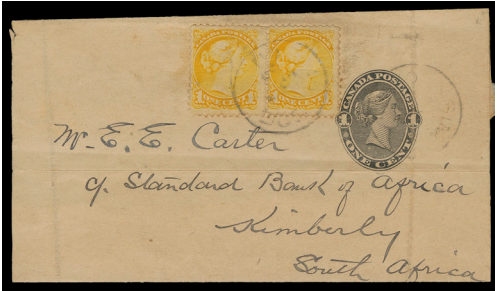 ONE CENT ONE CENT
CANADA POSTAGE
1 1
ONE CENT
Mr. E. E. Carter
c/. Standard Bank of Africa
Kimberly
South Africa